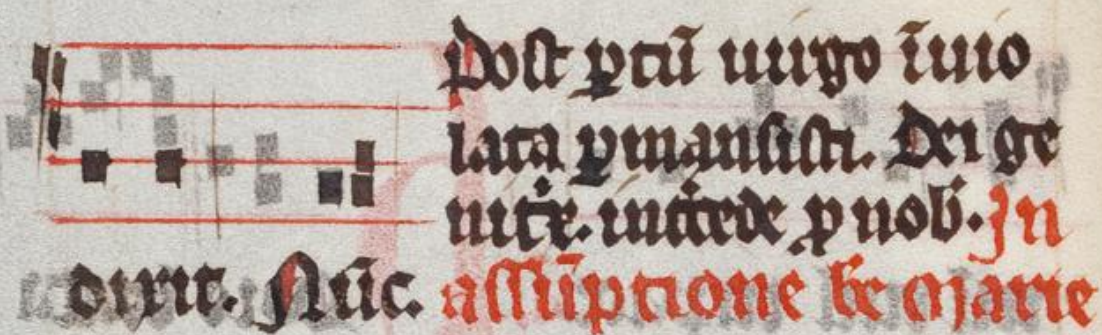 Post ꝑtū uirgo īuio
lata ꝑmansisti. Dei ge
nitͥx. intͨede ꝓ nob̄. In
dixit. Nūc. assūptione be Marie